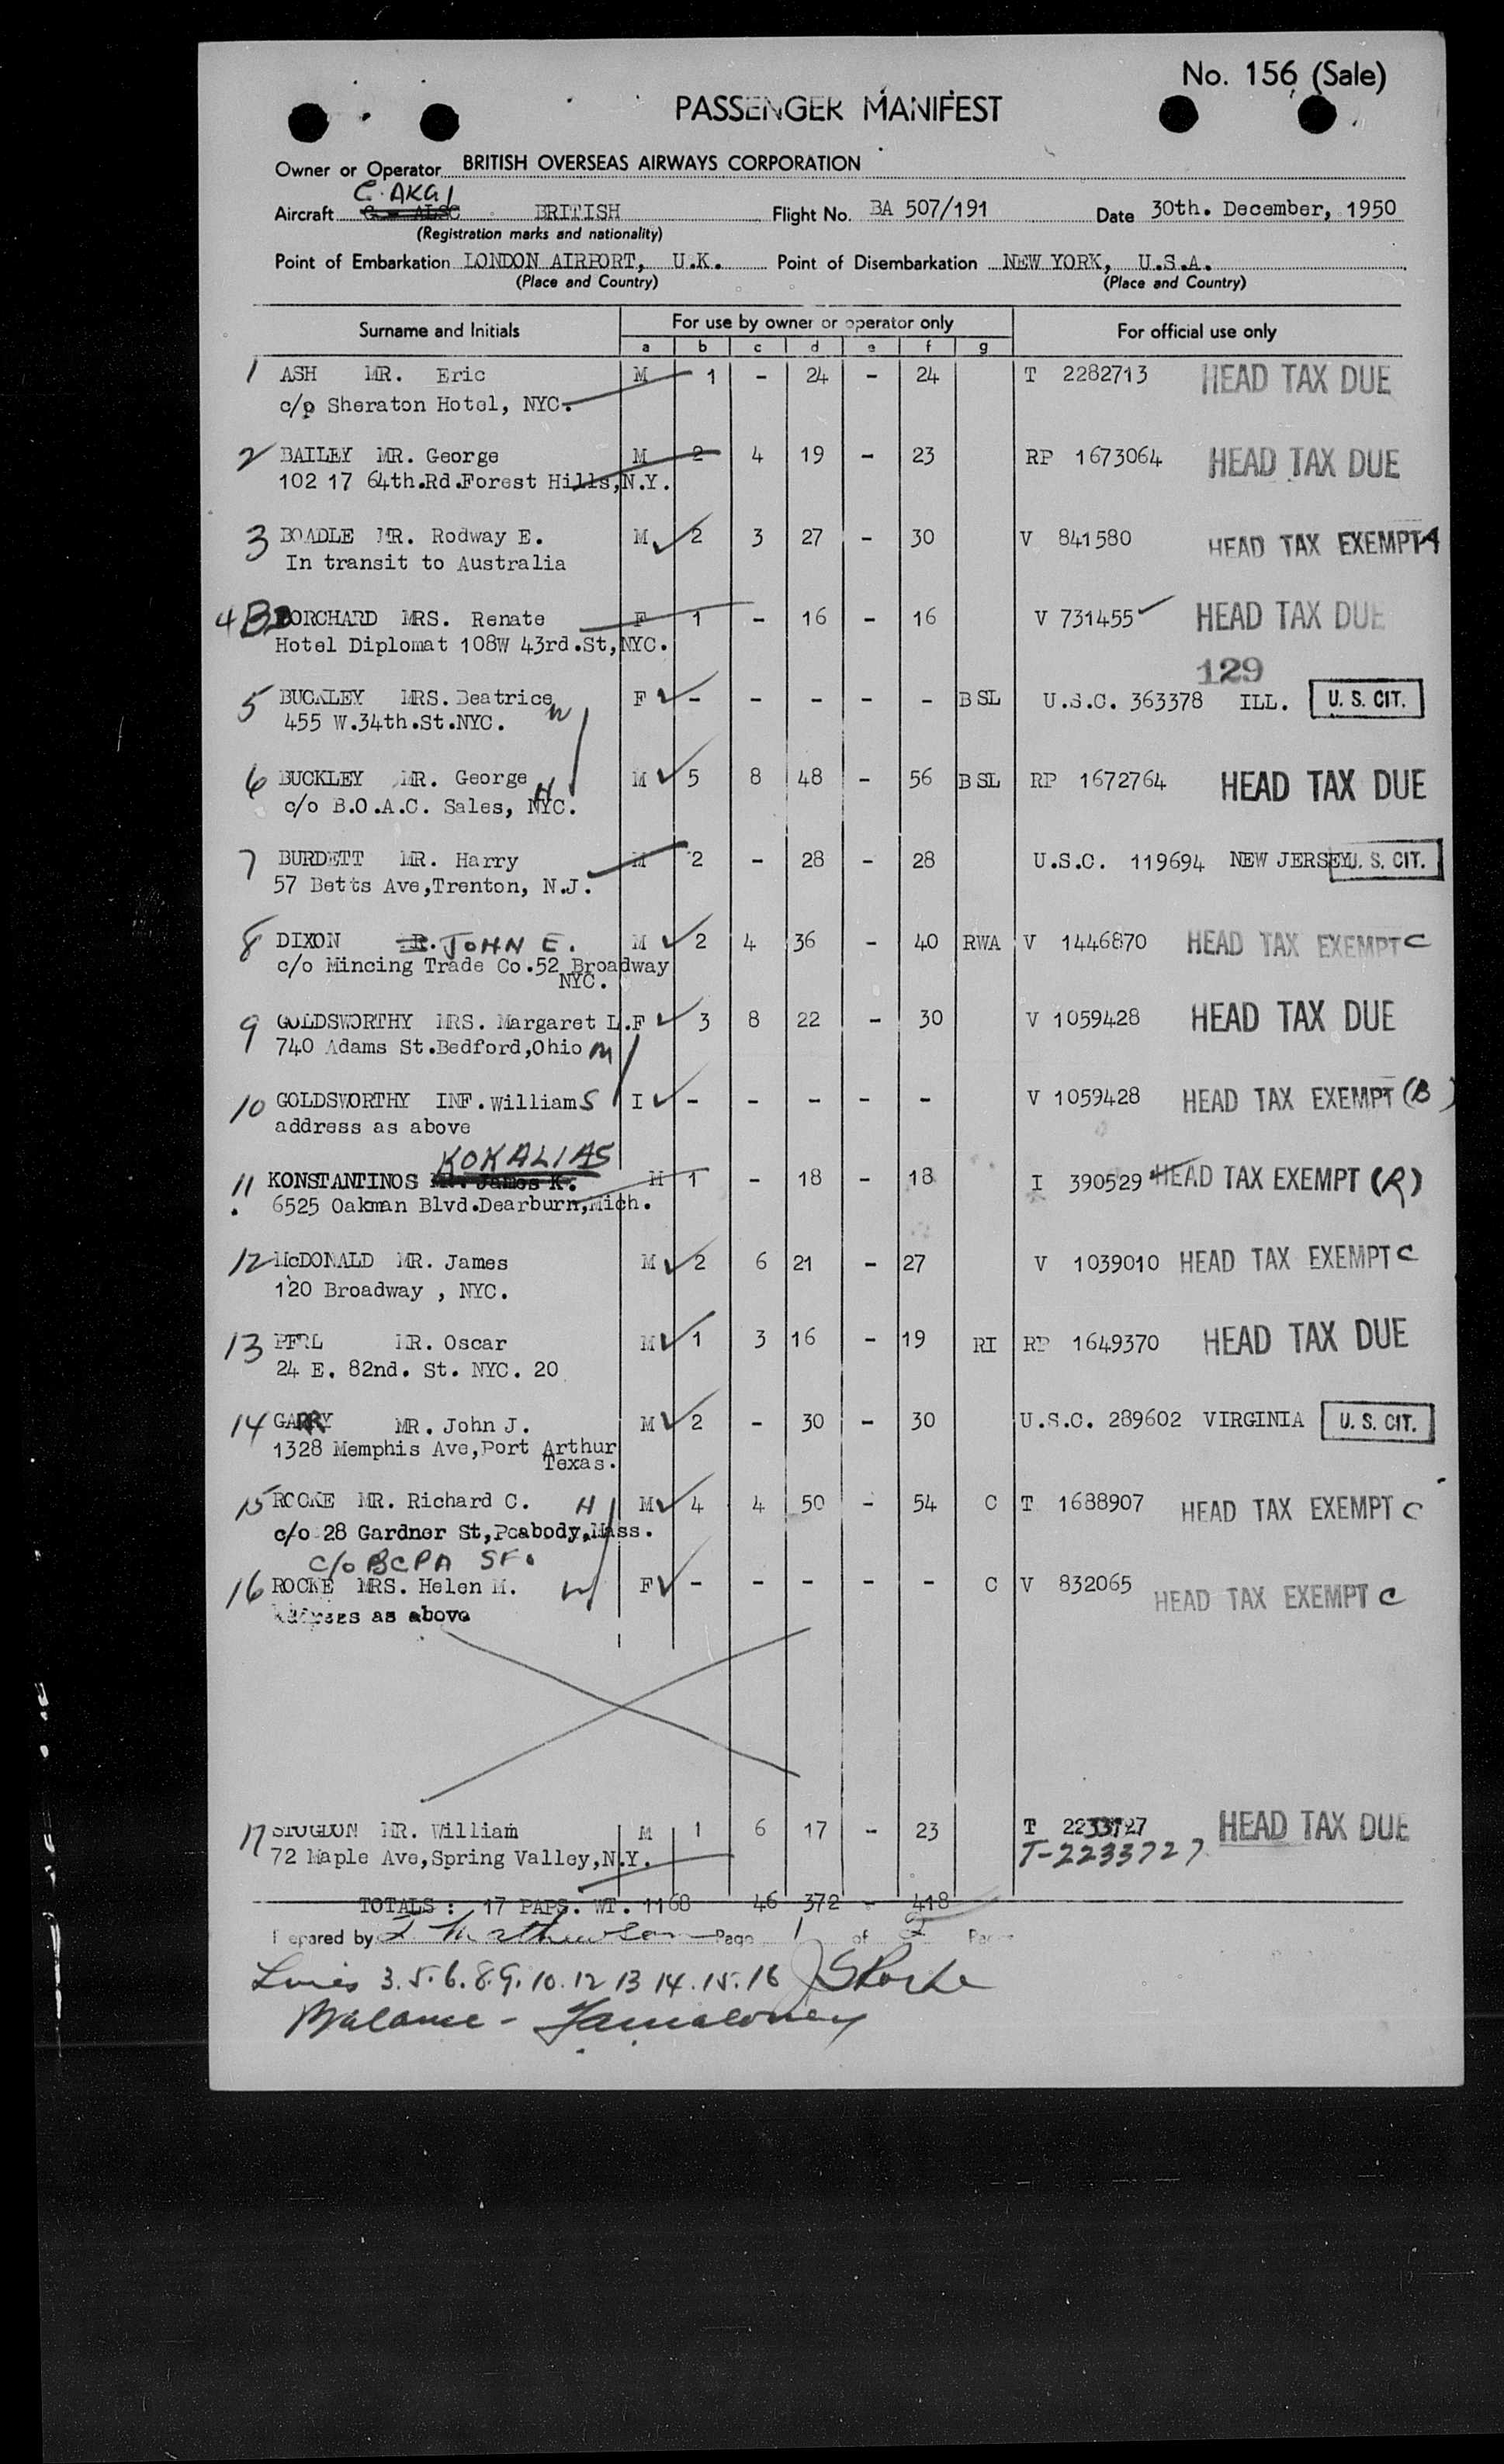 No. 156 (Sale)
PASSENGER MANIFEST
Owner or Operator BRITISH OVERSEAS AIRWAYS CORPORATION
G.AKGJ
Aircraft G - ALSC BRITISH Flight No. BA 507/191 Date 30th. December, 1950
(Registration marks and nationality)
Point of Embarkation LONDON AIRPORT, U.K. Point of Disembarkation NEW YORK, U.S.A.
(Place and Country) (Place and Country)
Surname and Initials For use by owner or operator only For official use only
a b c d e f g
1 ASH MR. Eric M 1 - 24 - 24 T 2282713 HEAD TAX DUE
c/o Sheraton Hotel, NYC.
2 BAILEY MR. George M 2 4 19 - 23 RP 1673064 HEAD TAX DUE
102 17 64th.Rd.Forest Hills,N.Y.
3 BOADLE MR. Rodway E. M 2 3 27 - 30 V 841580 HEAD TAX EXEMPT A
In transit to Australia
4 BORCHARD MRS. Renate F 1 - 16 - 16 V 731455 HEAD TAX DUE
Hotel Diplomat 108W 43rd.St,NYC.
129
5 BUCKLEY MRS. Beatrice W F - - - - - BSL U.S.C. 363378 ILL. U. S. CIT.
455 W.34th.St.NYC.
6 BUCKLEY MR. George H M 5 8 48 - 56 BSL RP 1672764 HEAD TAX DUE
c/o B.O.A.C. Sales, NYC.
7 BURDETT MR. Harry M 2 - 28 - 28 U.S.C. 119694 NEW JERSEY U. S. CIT.
57 Betts Ave,Trenton, N.J.
8 DIXON JOHN E. M 2 4 36 - 40 RWA V 1446870 HEAD TAX EXEMPT C
c/o Mincing Trade Co.52 Broadway
NYC.
9 GOLDSWORTHY MRS. Margaret L.F 3 8 22 - 30 V 1059428 HEAD TAX DUE
740 Adams St.Bedford,Ohio M
10 GOLDSWORTHY INF. William S I - - - - - V 1059428 HEAD TAX EXEMPT (B)
address as above
KOKALIAS
11 KONSTANTINOS Mr. James K. M 1 - 18 - 18 I 390529 HEAD TAX EXEMPT (R)
6525 Oakman Blvd.Dearburn,Mich.
12 McDONALD MR. James M 2 6 21 - 27 V 1039010 HEAD TAX EXEMPT C
120 Broadway , NYC.
13 PFRL MR. Oscar M 1 3 16 - 19 RI RP 1649370 HEAD TAX DUE
24 E. 82nd. St. NYC. 20
14 GARRY MR. John J. M 2 - 30 - 30 U.S.C. 289602 VIRGINIA U. S. CIT.
1328 Memphis Ave,Port Arthur
Texas.
15 ROCKE MR. Richard C. H M 4 4 50 - 54 C T 1688907 HEAD TAX EXEMPT C
c/o 28 Gardner St,Peabody,Mass.
C/o BCPA SF.
16 ROCKE MRS. Helen M. W F - - - - - C V 832065 HEAD TAX EXEMPT C
Address as above
17 STOGDON MR. William M 1 6 17 - 23 T 2233727 HEAD TAX DUE
72 Maple Ave,Spring Valley,N.Y. T-2233727
TOTALS : 17 PAPS. WT. 1168 46 372 - 418
Prepared by Page 1 of 2 Pages
Lines 3.5.6.8.9.10.12 13 14.15.16
Balance -